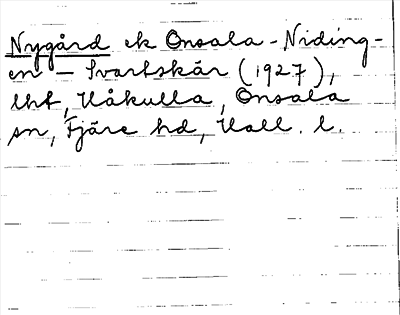 Nygård ek Onsala-Niding-
en - Svartskär (1927),
lht, Håkulla, Onsala
sn, Fjäre hd, Hall. l.